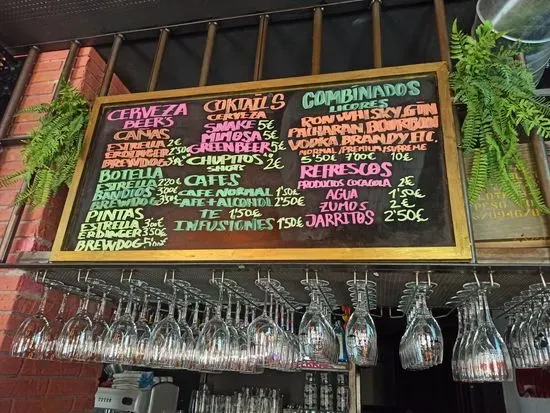 CERVEZA
BEERS
CAÑAS
ESTRELLA 2€
ERDINGER
BREWDOG
BOTELLA
ESTRELLA 2'20€
3'00€
BREWDOG
PINTAS
ESTRELLA
ERDINGER 3'50€
BREWDOG
COKTAILS
CERVEZA
SNAKE 5€
MIMOSA 5€
GREEN BEER 5€
CHUPITOS 2€
SHOTS
CAFES
CAFE NORMAL 1'50€
CAFE+ALCOHOL 2'50€
TE 1'50€
INFUSIONES 1'50€
COMBINADOS
LICORES
RON WHISKY GIN
PACHARAN BOURBON
VODKA BRANDY ETC.
NORMAL/PREMIUM/SUPREME
5'50€ 7'00€ 10€
REFRESCOS
PRODUCTOS COCACOLA 2€
AGUA 1'50€
ZUMOS 2€
JARRITOS 2'50€